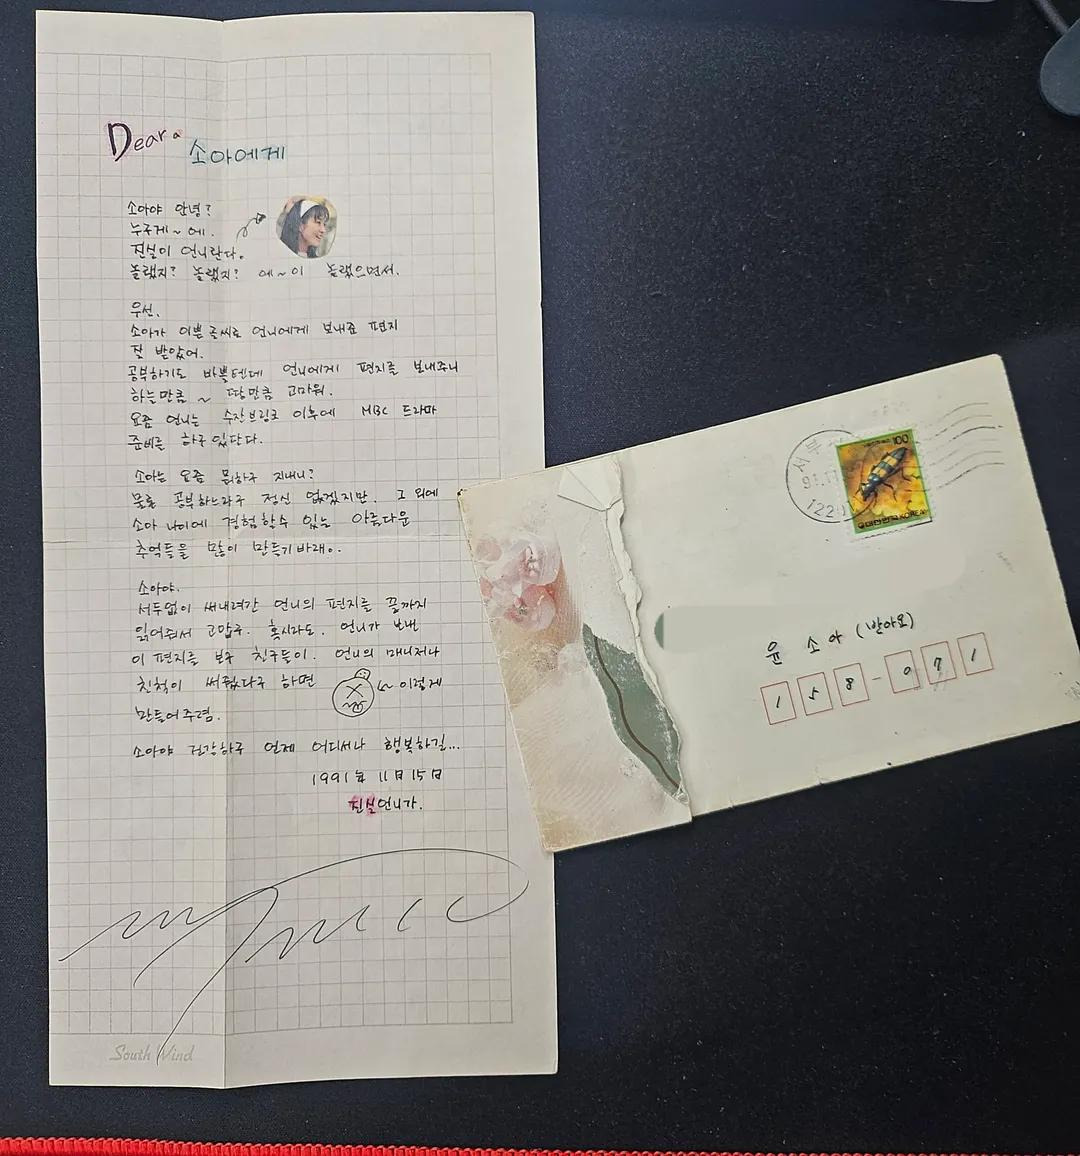 Dear a
소아에게
소아야 안녕?
누구게~ 에.
진실이 언니란다.
놀랬지? 놀랬지? 에~이 놀랬으면서.
우선,
소아가 이쁜 글씨로 언니에게 보내준 편지
잘 받았어.
공부하기도 바쁠텐데 언니에게 편지를 보내주니
하늘만큼 ~ 땅만큼 고마워.
요즘 언니는 수잔브링크 이후에 MBC 드라마
준비를 하구 있단다.
소아는 요즘 뭘하구 지내니?
물론 공부하느라구 정신 없겠지만, 그 외에
소아 나이에 경험할수 있는 아름다운
추억들을 많이 만들기 바래.
소아야.
서두없이 써내려간 언니의 편지를 끝까지
읽어줘서 고맙구. 혹시라도. 언니가 보낸
이 편지를 보구 친구들이. 언니의 매니저나
친척이 써줬다구 하면 이렇게
만들어주렴.
소아야 건강하구 언제 어디서나 행복하길...
1991년 11월 15일
진실언니가.
South Wind
서부
91.11
122
100
대한민국 KOREA
윤 소 아 (받아요)
158-071